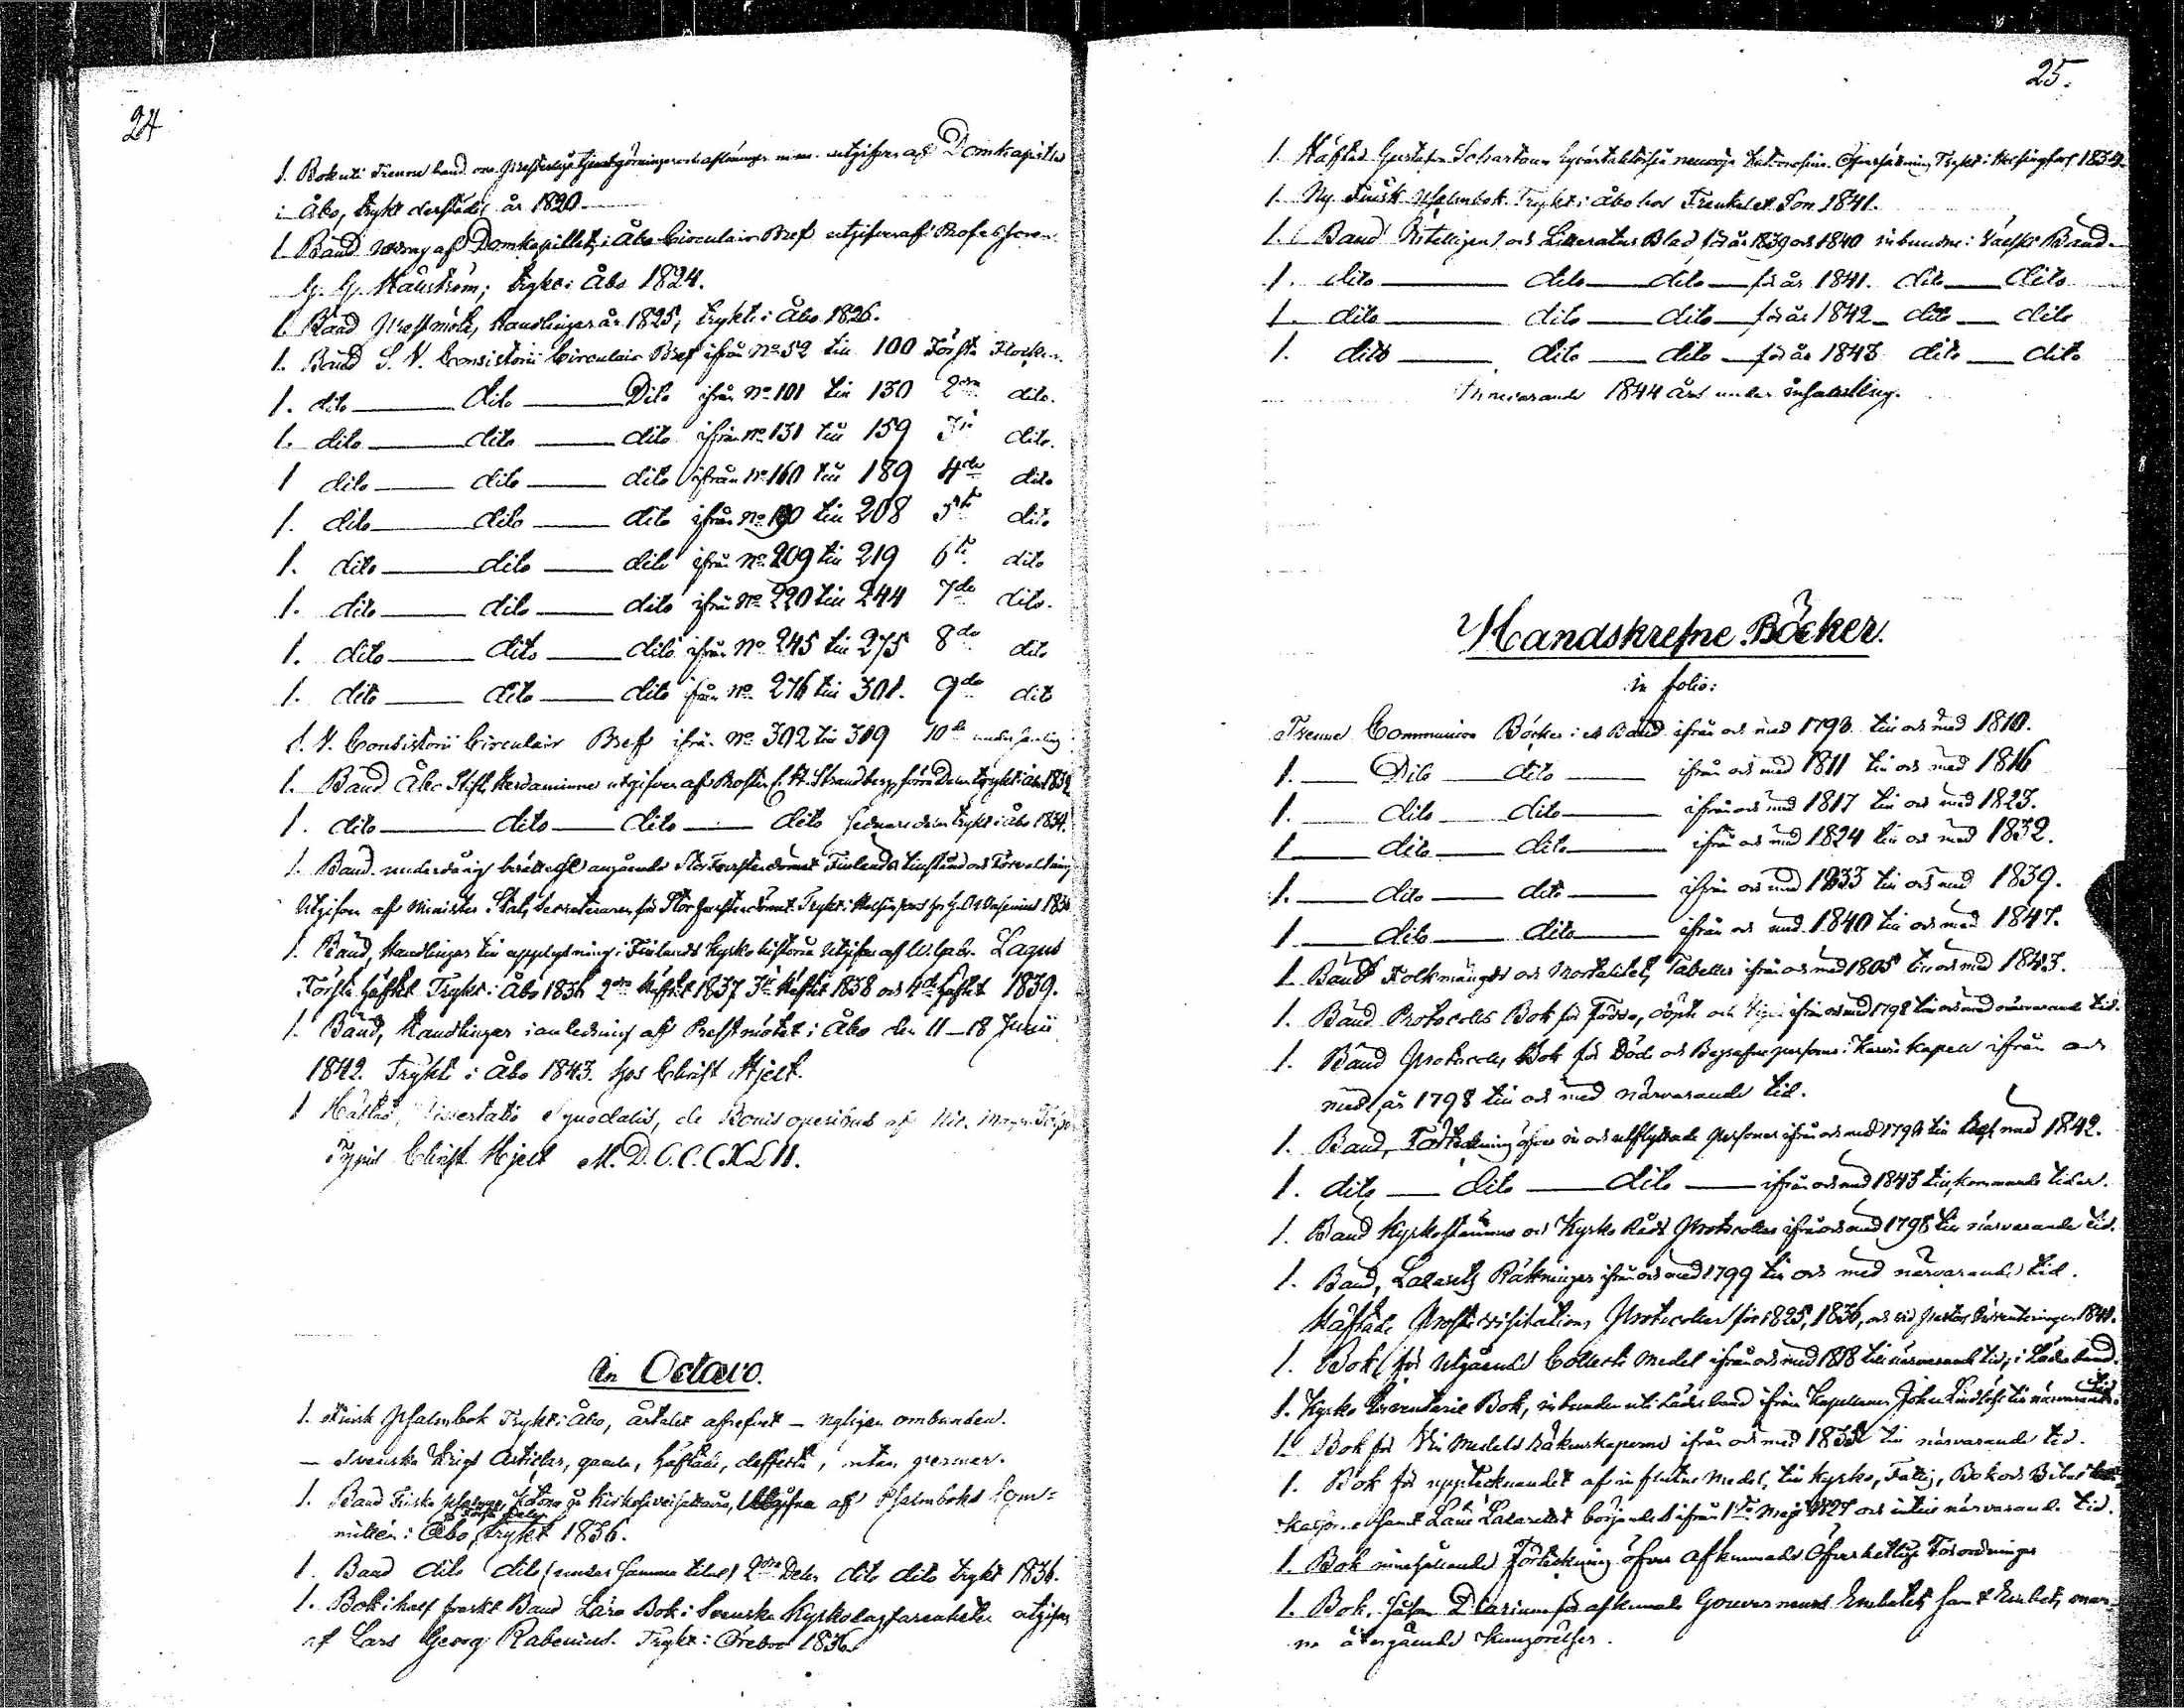 24
1. Bok uti Trenne band om Presterlige Tjenstgörningar och aflöningar m.m. utgifven af Domkapitlet
i Åbo, trykt derstädes år 1820.
1 Band af Domkapitlet i Åbo Circulair Bref utgifven af Professoren
G. G. Hällström; trykt i Åbo 1824.
1. Band Prestmöte, Handlingar år 1825, trykt i Åbo 1826.
1. Band S. V. Consistorii Circulair Bref ifrån No 52 till 100 Första Flocken.
1. dito dito Dito ifrån No 101 till 130 2dra dito.
1. dito dito dito ifrån No 131 till 159 3je dito.
1 dito dito dito ifrån No 160 till 189 4de dito
1. dito dito dito ifrån No 190 till 208 5te dito
1. dito dito dito ifrån No 209 till 219 6te dito
1. dito dito dito ifrån No 220 till 244 7de dito.
1. dito dito dito ifrån No 245 till 275 8de dito
1. dito dito dito ifrån No 276 till 301. 9de dito
S. V. Consistorii Circulair Bref ifrån No 302 till 309 10de under samling
1. Band Åbo Stifts Herdaminne utgifven af Prosten C. H. Strandberg förra Delen trykt i Åbo 1832
1. dito dito dito dito sednare delen trykt i Åbo 1834.
1. Band underdånig berättelse angående StorFurstendömet Finlands tillstånd och Förvaltning
Utgifven af Minister Stats Secreteraren för StorFurstendömet. Trykt i Helsingfors hos G. O. Wasenius
1. Band, Handlingar till upplysning i Finlands Kyrko historia utgifven af W. Gabr. Lagus
Första häftet Trykt i Åbo 1836 2dra Häftet 1837 3je Häftet 1838 och 4de häftet 1839.
1. Band, Handlingar i anledning af Prestmötet i Åbo den 11–18 Junii
1842. Trykt i Åbo 1843. hos Christ. Hjelt.
1 Häftad, Dissertatio Synodalis, de Bonis operibus af Nic. Magn.
Typis Christ. Hjelt M.D.C.C.C.XLII.
in Octavo.
1. Finsk Psalmbok Trykt i Åbo, årtalet afrefvet – nyligen ombunden.
– Svenska Krigs Articlar, gamla, häftade, deffecta, utan permar.
1. Band Finska Kirkkoveisattavia, utgifna af Psalmboks Com-
mitten i Åbo, trykt 1836.
1. Band dito dito (under samma titel) 2dra Delen dito dito trykt 1836.
1. Bok i half franskt Band Läro Bok i Svenska Kyrkolagfarenheten utgifven
af Lars Georg Rabenius. Trykt i Örebro 1836.
25.
1. Häftad Gustafva Schartaus Öfversättning Trykt i Helsingfors 1834.
1. Ny Finsk Psalmbok. Trykt i Åbo hos Frenkel et Son 1841.
1. Band Intelligens och Litteratur Blad för år 1839 och 1840 inbundne i Band.
1. dito dito dito för år 1841. dito dito
1. dito dito dito för år 1842 dito dito
1. dito dito dito för år 1843 dito dito
Innevarande 1844 års under insamling.
Handskrefne Böcker.
in folio:
Trenne Communion Böcker i ett Band ifrån och med 1793 till och med 1810.
1. Dito dito ifrån och med 1811 till och med 1816
1. dito dito ifrån och med 1817 till och med 1823.
1 dito dito ifrån och med 1824 till och med 1832.
1. dito dito ifrån och med 1833 till och med 1839.
1 dito dito ifrån och med 1840 till och med 1847.
1 Band Folkmängds och Mortalitets Tabeller ifrån och med 1805 till och med 1843.
1. Band Protocolls Bok för Födde, döpte och Vigde ifrån och med 1798 till och med närvarande tid.
1. Band Protocolls Bok för Döde och Begrafne personer i Kapell ifrån och
med år 1798 till och med närvarande tid.
1. Band, Förteckning öfver in och utflyttade Personer ifrån och med 1794 till och med 1842.
1. dito dito dito ifrån och med 1843 till kommande tider.
1. Band Kyrkostämmo och Kyrko Råds Protocoller ifrån och med 1798 till närvarande tid.
1. Band, Lazaretts Räkningar ifrån och med 1799 till och med närvarande tid.
Häftade Prostevisitations Protocoller för 1825, 1836, och vid Prostens Inventeringar 1841.
1. Bok för Utgående Collect Medel ifrån och med 1818 till närvarande tid, i Läderband.
1. Kyrko Inventarie Bok, inbunden uti Läderband ifrån Kapellanen Johan Lindlöfs till närvarande tid.
1. Bok för Vin Medels Räkenskaperne ifrån och med 1838 till närvarande tid.
1. Bok för upptecknandet af influtne Medel, till Kyrko, Fattig, Bok och Bibel
Kassorne samt Läne Lazarettet började ifrån 1sta Maji 1827 och intill närvarande tid.
1. Bok innehållande Förteckning öfver afkunnade Öfverhetlige Förordningar
1. Bok, såsom Diarium för afkunnade Gouvernements Embetets samt Embets män-
ne återgående Kungörelser.